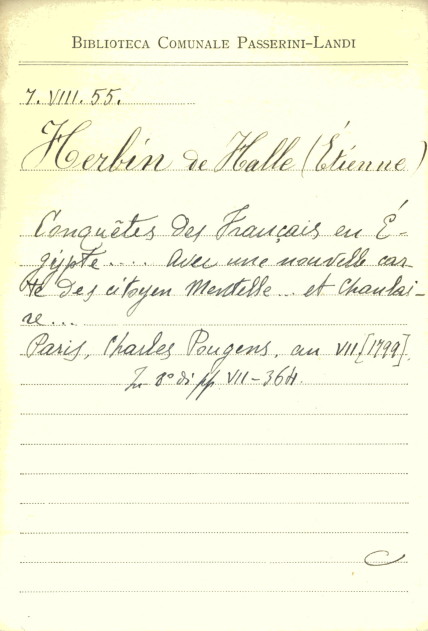 BIBLIOTECA COMUNALE PASSERINI-LANDI
7. VIII. 55.
Herbin de Halle (Étienne)
Conquêtes des Français en É-
gypte.... Avec une nouvelle car-
te des citoyen Mentelle... et Chanlai-
re...
Paris, Charles Pougens, an VII [1799].
In 8° di pp VII-364.